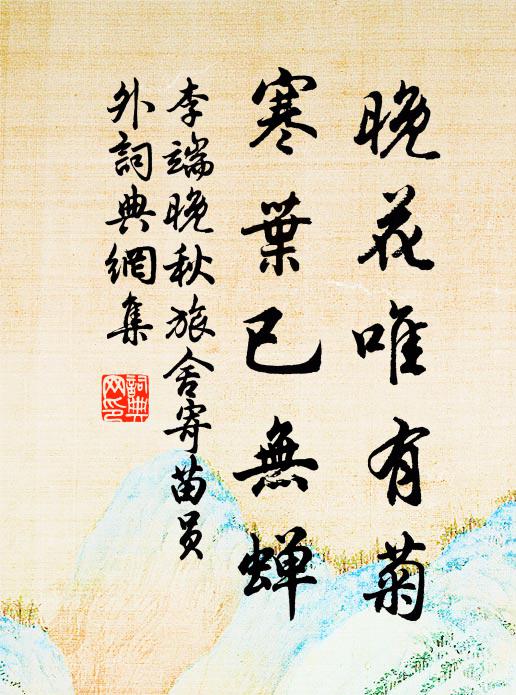 晚花唯有菊
寒葉已無蟬
李端晚秋旅舍寄苗員
外詞典網集
詞典
网印